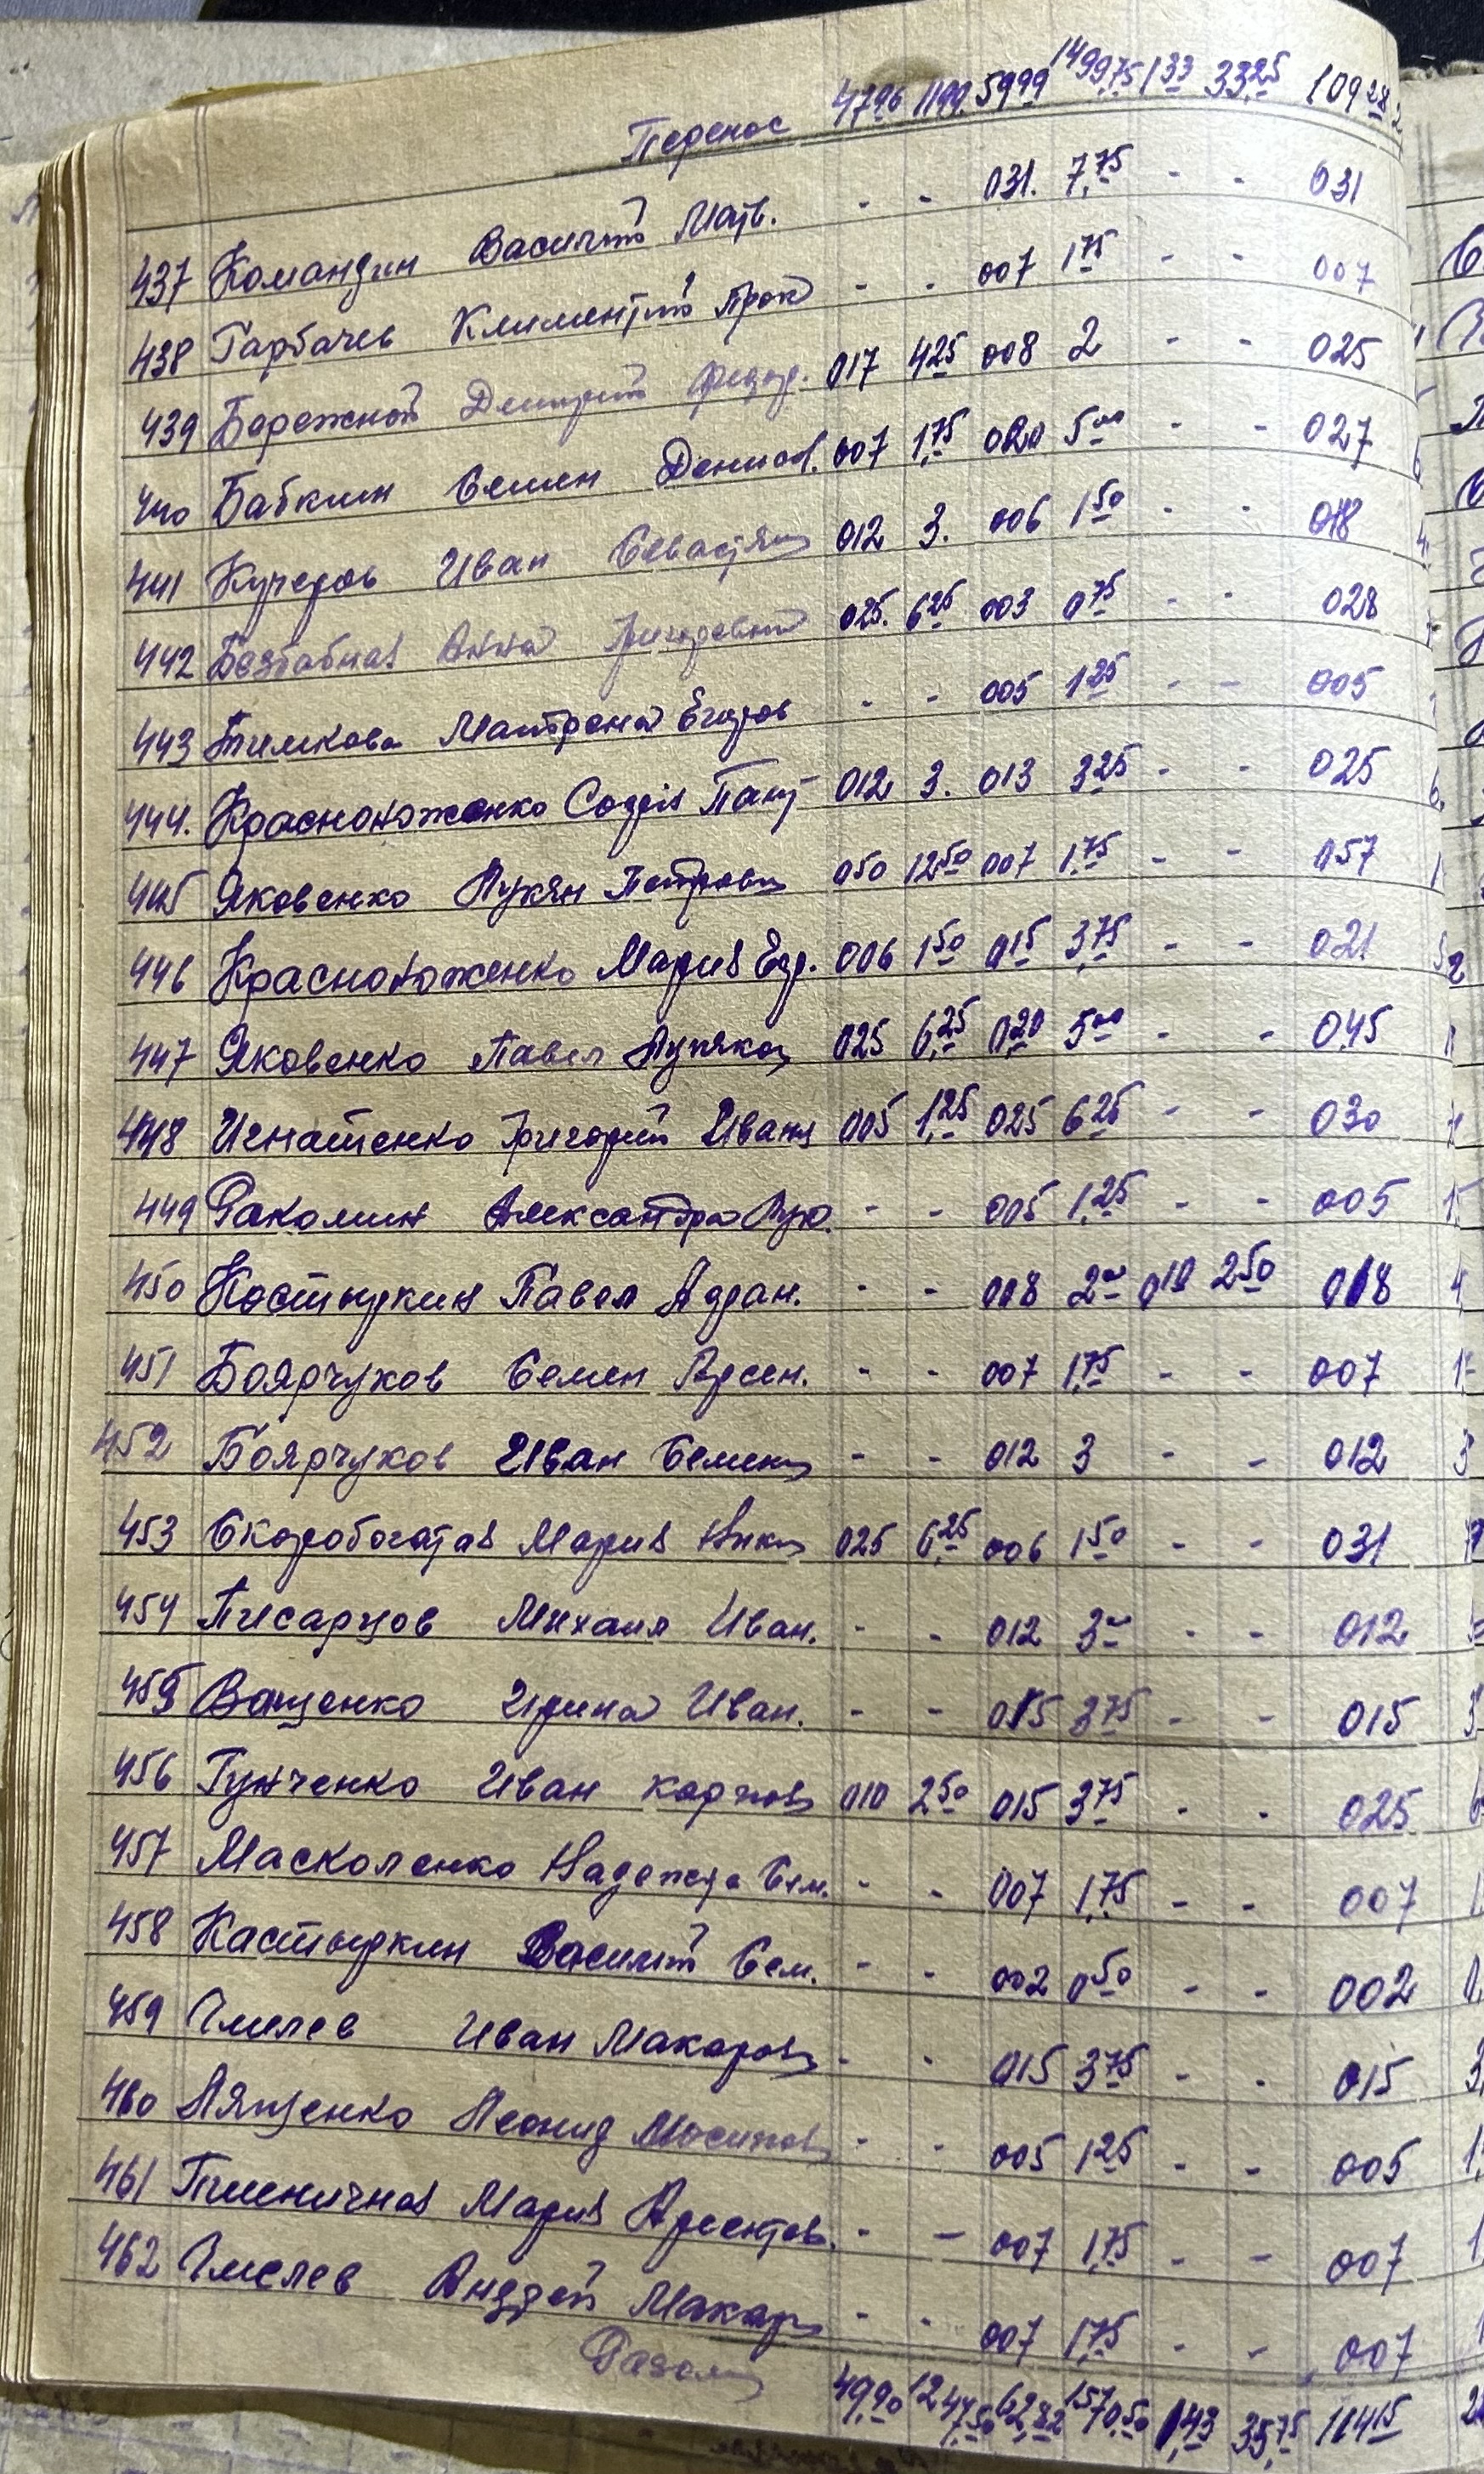 Перенос 4796 1199 5999 149975 133 3325 10928
437 Командин Василий Матв. - - 031. 7,75 - - 031
438 Гарбачев Климентий Прок - - 007 1 75 - - 007
439 Бережной Дмитрий Федор. 017 4 25 008 2 - - 025
440 Бабкин Семен Денисов. 007 1,75 020 5 00 - - 027
441 Кучеров Иван Севастян 012 3. 006 1 50 - - 018
442 Беззабная Анна Григоревна 025. 6 25 003 0 75 - - 028
443 Тимкова Матрена Егоров - - 005 1 25 - - 005
444. Красноноженко Софія Пант 012 3. 013 3 25 - - 025
445 Яковенко Лукян Петрович 050 12 50 007 1,75 - - 057
446 Красноноженко Мария Егр. 006 1 50 015 3,75 - - 021
447 Яковенко Павел Лукяков 025 6,25 020 5 00 - - 045
448 Игнатенко Григорий Иванов 005 1,25 025 6 25 - - 030
449 Раколин Александра - - 005 1,25 - - 005
450 Костыркин Павел Адран. - - 008 2 00 010 2 50 018
451 Боярчуков Семен Арсен. - - 007 1,75 - - 007
452 Боярчуков Иван Семен - - 012 3 - - 012
453 Скоробогатая Мария Ники 025 6,25 006 1 50 - - 031
454 Писарцов Михаил Иван. - - 012 3 - - 012
455 Ващенко Ирина Иван. - - 015 3 75 - - 015
456 Гунченко Иван Карпов 010 2 50 015 3 75 - - 025
457 Масколенко Надежда Сем. - - 007 1,75 - - 007
458 Кастыркин Василий Сем. - - 002 0 50 - - 002
459 Чмелев Иван Макаров - - 015 3 75 - - 015
460 Лященко Леонид - - 005 1 25 - - 005
461 Пшеничная Мария Арсентов. - - 007 1,75 - - 007
462 Чмелев Андрей Макар - - 007 1,75 - - 007
Разом 49,90 1247,50 62,82 1570,50 1,43 35,75 11415